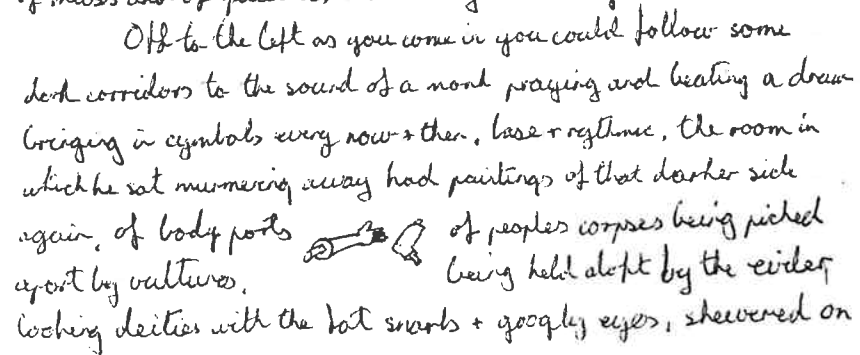 Off to the left as you come in you could follow some
dark corridors to the sound of a monk praying and beating a drum
bringing in cymbals every now + then, base + rythmic, the room in
which he sat murmering away had paintings of that darker side
again, of body parts of peoples corpses being picked
apart by vultures, being held aloft by the eviler
looking deities with the bat snarls + googly eyes, skewered on